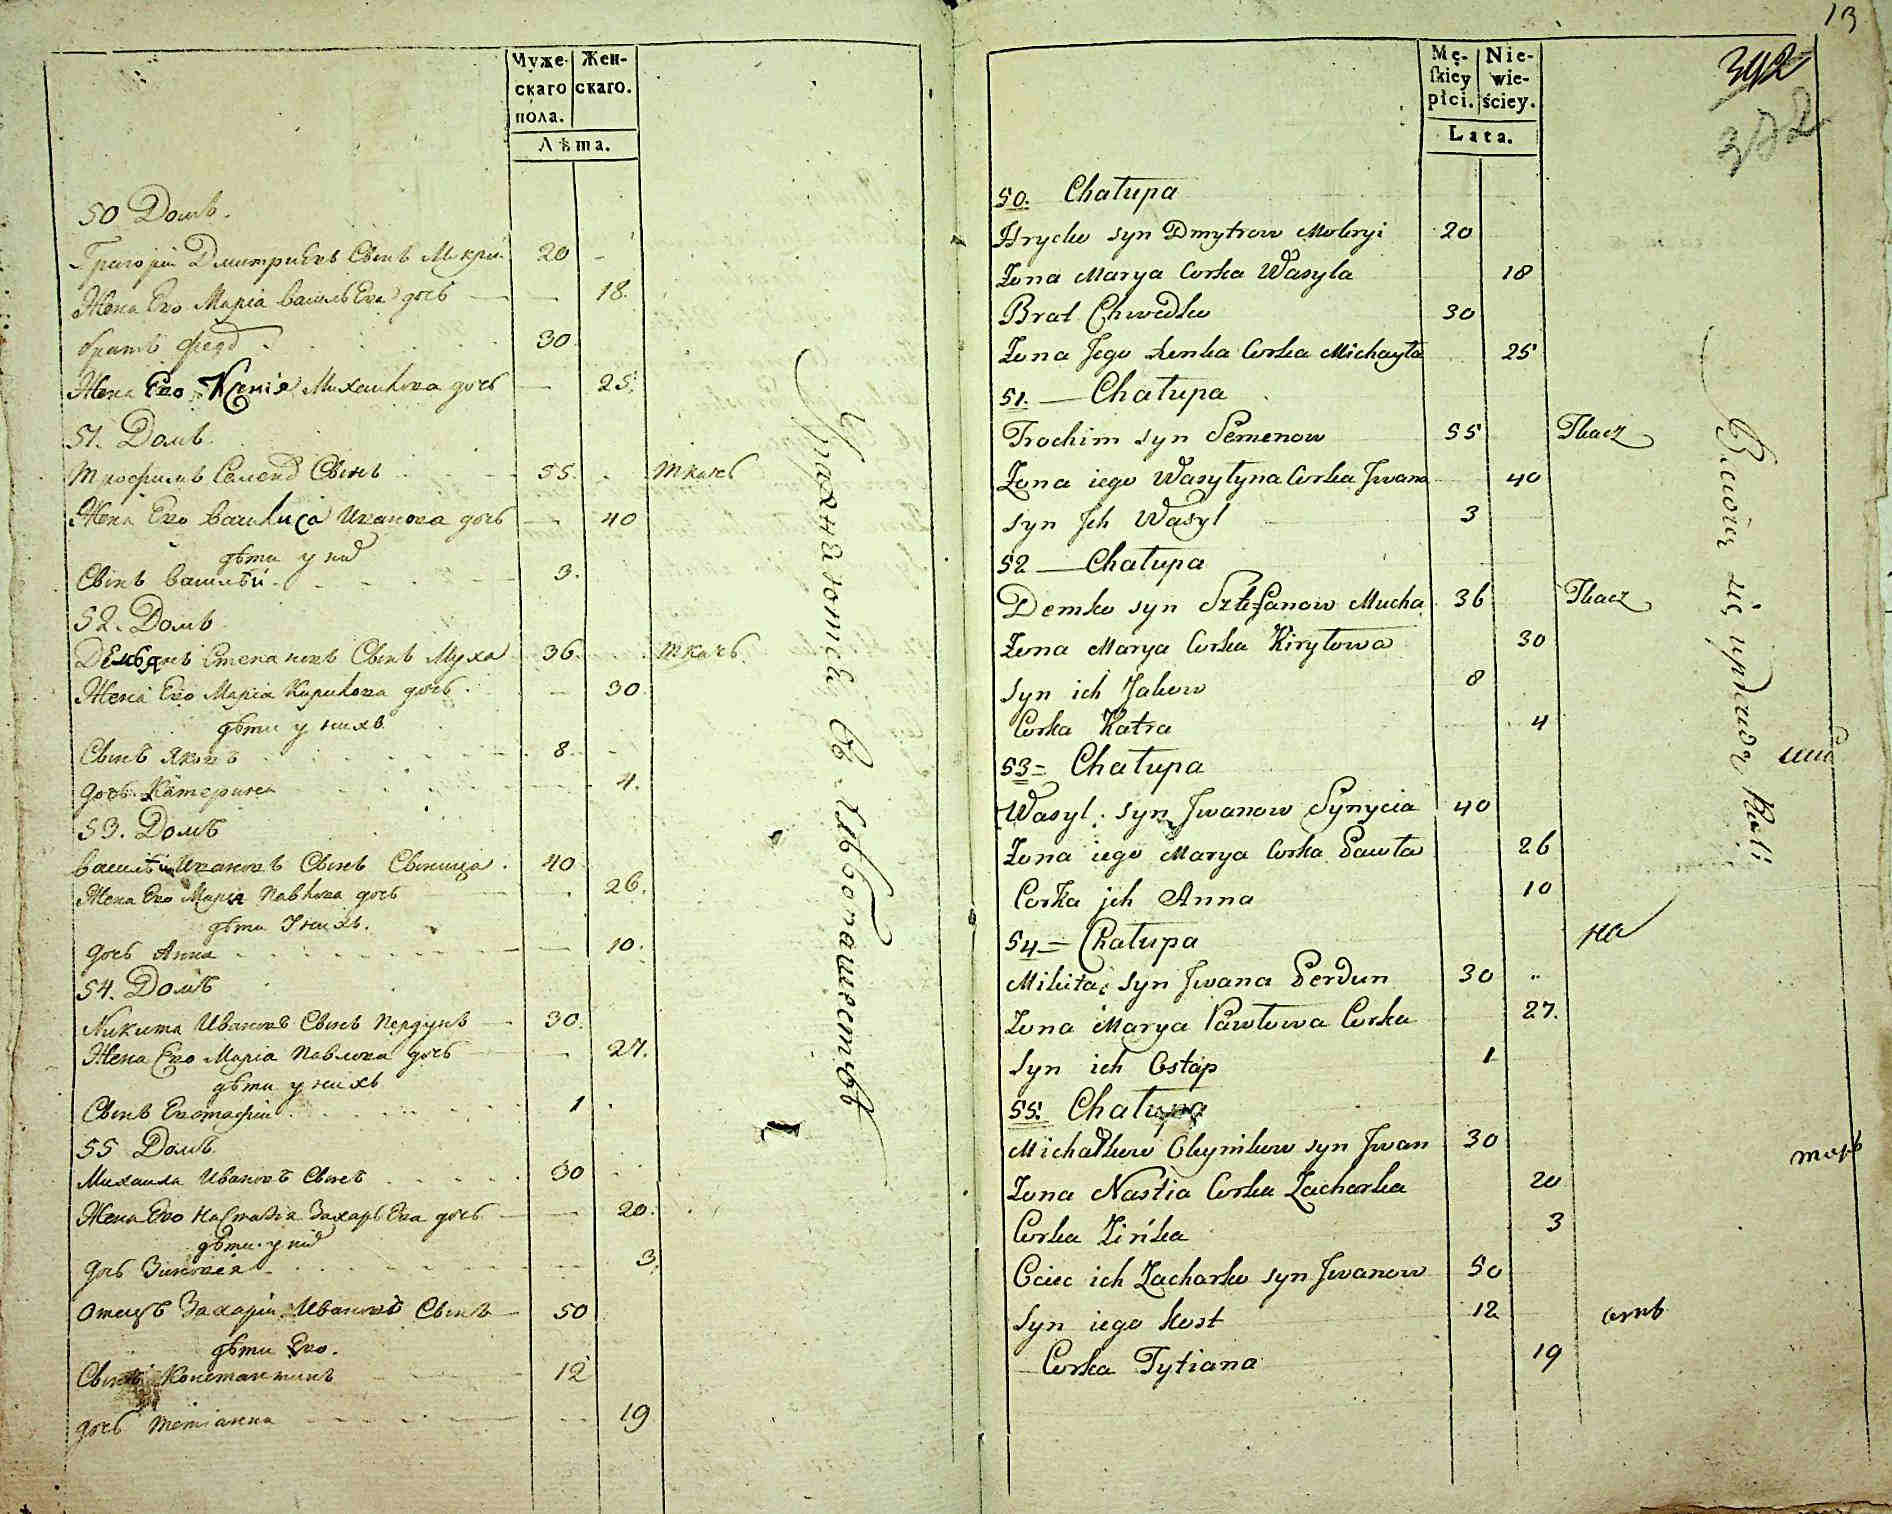 Муже- Жен-
скаго скаго.
пола.
Лѣта.
50 Домъ.
Григорій Дмитриевъ Сынъ Мокрій 20
Жена Его Марія Васильева дочь 18.
братъ Федо 30
Жена Его Ксенія Михайлова дочь 25.
51. Домъ
Трофимъ Семено Сынъ 55. ткачъ
Жена Его Василиса Иванова дочь 40
дѣти у ни
Сынъ Василей 3.
52. Домъ
Демьянъ Степановъ Сынъ Муха 36. ткачъ
Жена Его Марія Кирилова дочь 30
дѣти у нихъ
Сынъ Яковъ 8.
дочь Катерина 4.
53. Домъ
Василій Ивановъ Сынъ Синица 40
Жена Его Марія Павлова дочь 26.
дѣти У нихъ.
дочь Анна 10.
54. Домъ
Никита Ивановъ Сынъ Пердунъ 30.
Жена Его Марія Павлова дочь 27.
дѣти у нихъ
Сынъ Евстафій 1
55 Домъ
Михаила Ивановъ Сынъ 30
Жена Его Настасія Захарьева дочь 20.
дѣти у ни
дочь Зиновея 3.
отецъ Захарій Ивановъ Сынъ 50
дѣти Его.
Сынъ Константинъ 12
дочь Тетіанна 19
Упражняются въ хлебопашествѣ
13
392
392
Mę- Nie-
ſkiey wie-
płci. ściey.
Lata.
50. Chałupa
Hrycko syn Dmytrow Mokryi 20
Żona Marya Corka Wasyla 18
Brat Chwedko 30
Żona Jego Xenka Corka Michayła 25
51. Chałupa
Trochim syn Semenow 55 Tkacz
Żona iego Wasylyna Corka Jwana 40
Syn Jch Wasyl 3
52 Chałupa
Demko syn Sztefanow Mucha 36 Tkacz
Żona Marya Corka Kiryłowa 30
Syn ich Jakow 8
Corka Katra 4
53= Chałupa
Wasyl syn Jwanow Synycia 40
Żona iego Marya Corka Pawła 26
Corka jch Anna 10
54= Chałupa
Mikita syn Jwana Perdun 30
Żona Marya Pawłowa Corka 27.
Syn ich Ostap 1
55. Chałupa
Michałkow Oleynikow syn Jwan 30
Żona Nastia Corka Zacharka 20
Corka Zińka 3
Ociec ich Zacharko syn Jwanow 50
Syn iego Kost 12
Corka Tytiana 19
Bawią się uprawą Roli
на